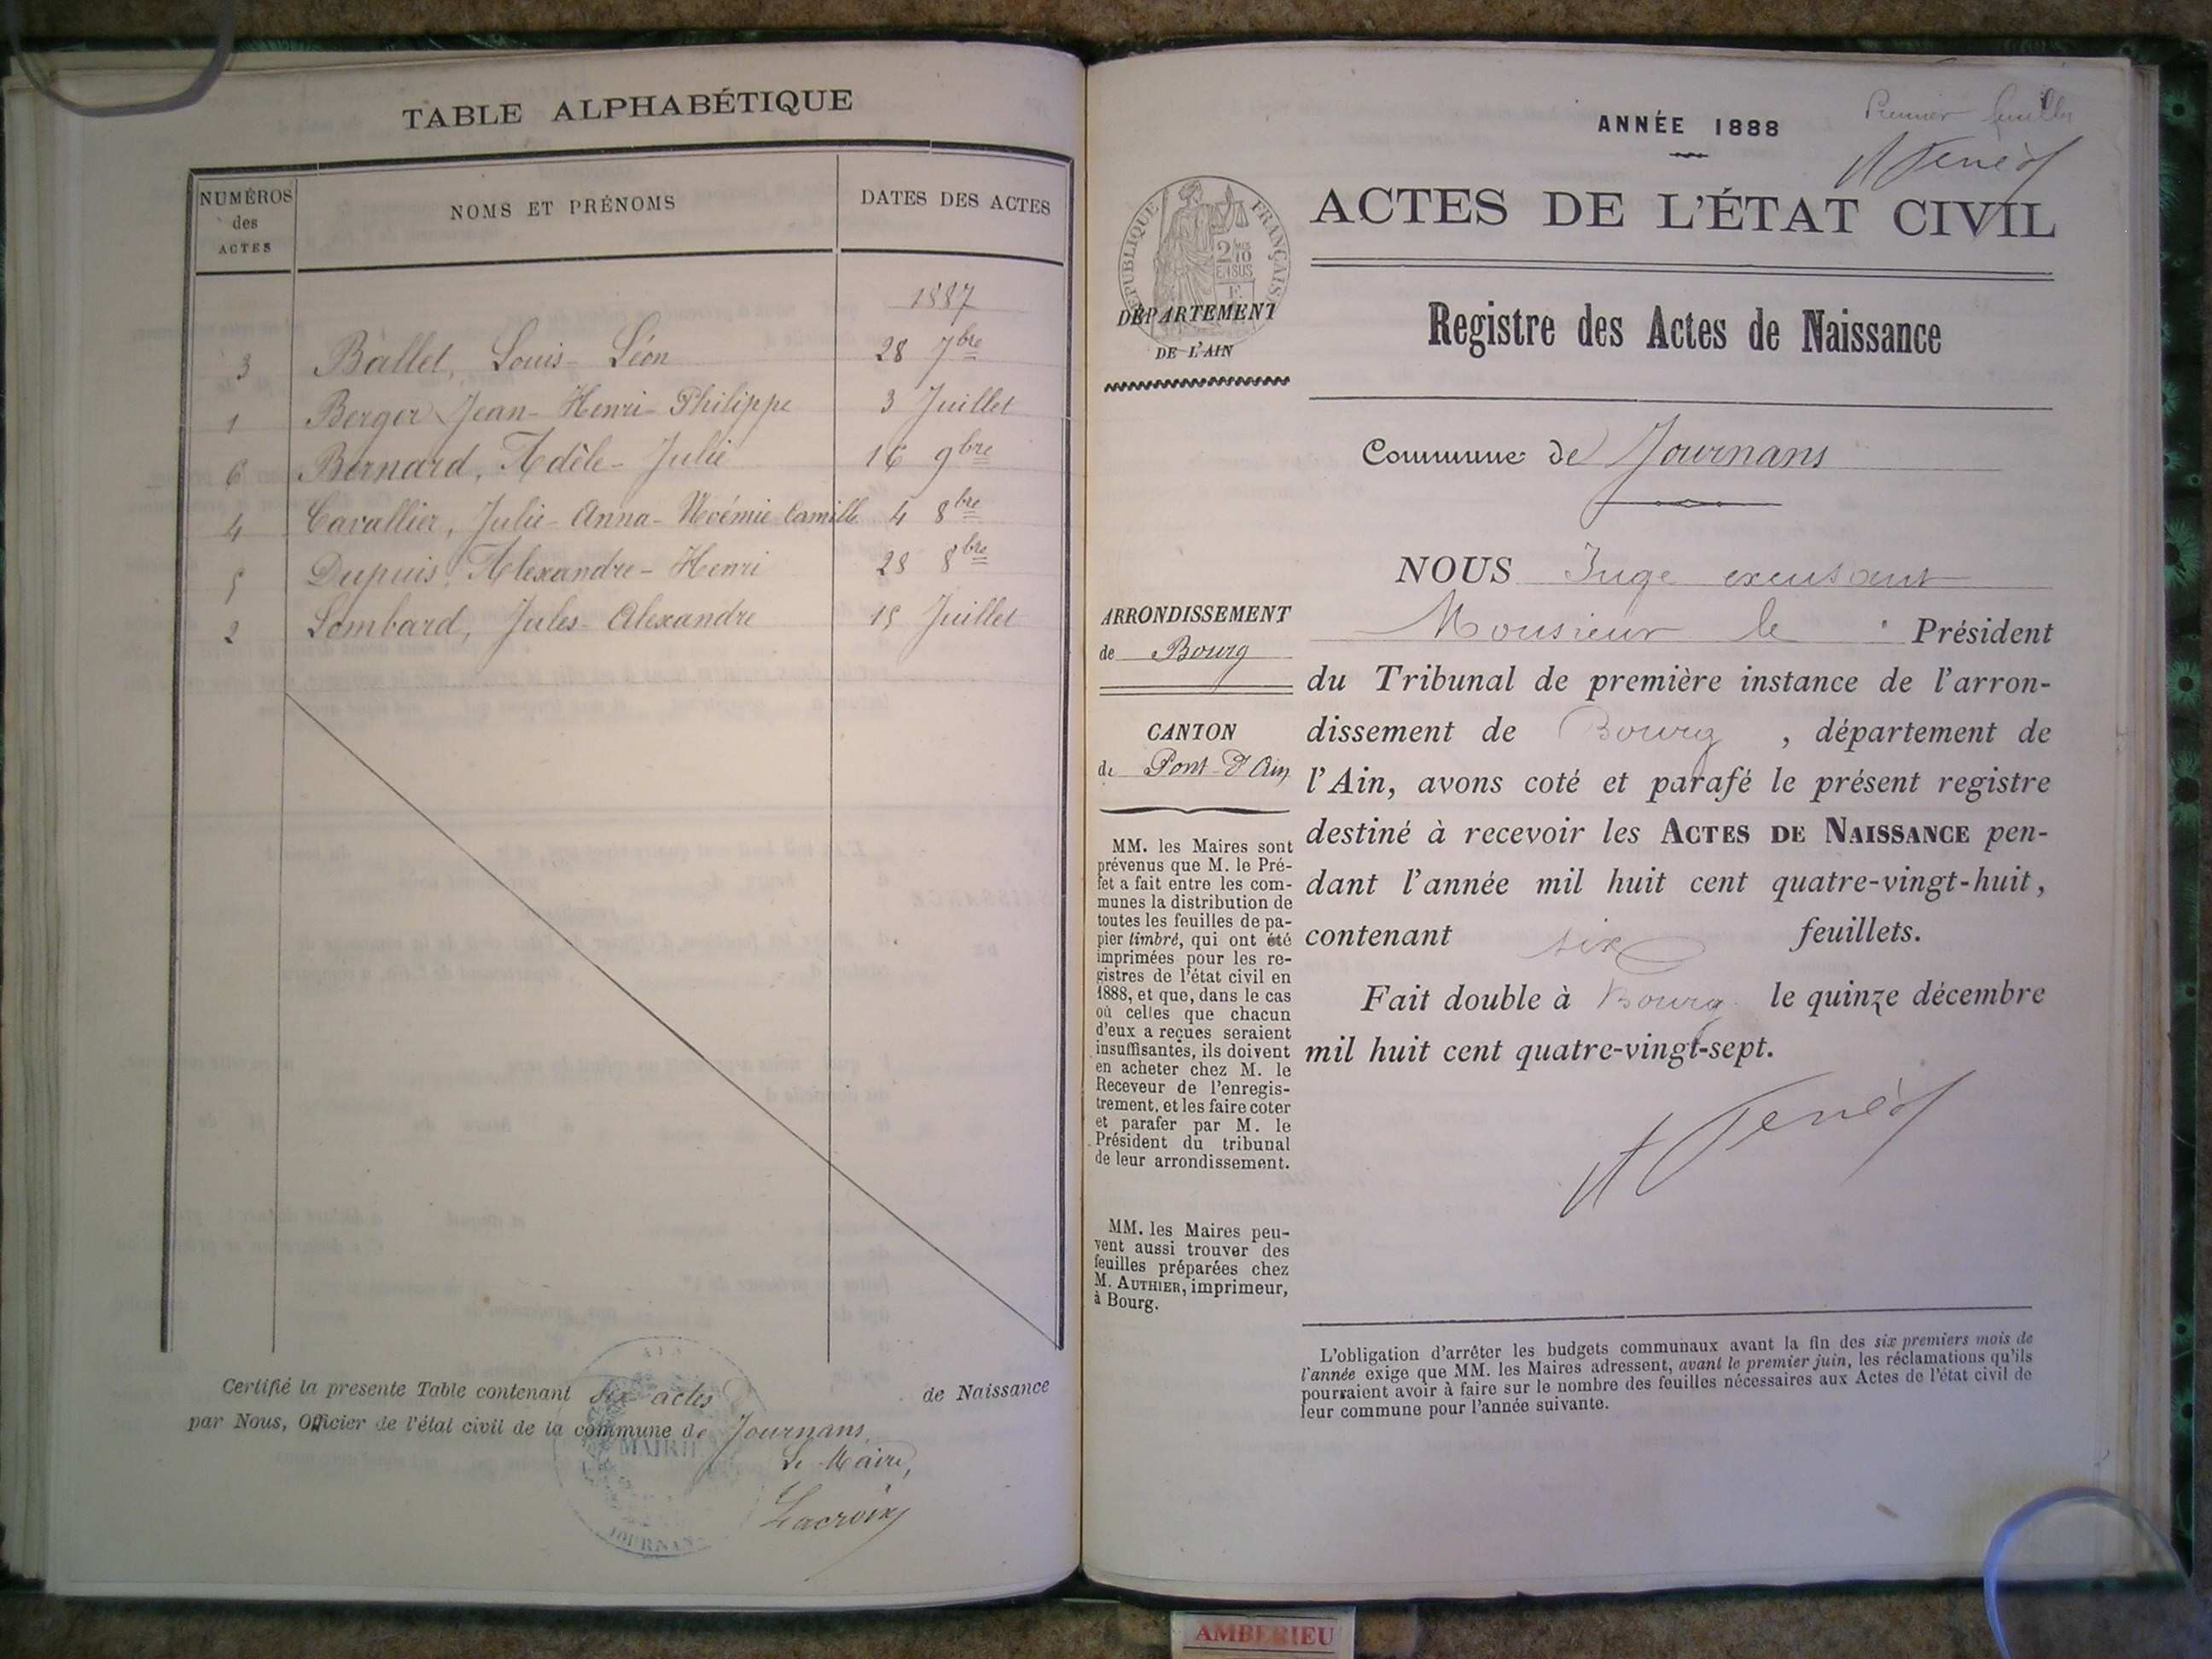 TABLE ALPHABÉTIQUE
NUMÉROS
des
ACTES
NOMS ET PRÉNOMS
DATES DES ACTES
1887
3 Ballet, Louis-Léon 28 7bre
1 Berger Jean-Henri-Philippe 3 Juillet
6 Bernard, Adèle-Julie 16 9bre
4 Cavallier, Julie-Anna-Noémie Camille 4 8bre
5 Dupuis, Alexandre-Henri 28 8bre
2 Lombard, Jules-Alexandre 15 Juillet
Certifié la presente Table contenant six actes de Naissance
par Nous, Officier de l'état civil de la commune de Journans,
Le Maire,
Lacroix
MAIRIE
JOURNANS
Premier feuillet
ANNÉE 1888
ACTES DE L'ÉTAT CIVIL
RÉPUBLIQUE FRANÇAISE
2/10
EN SUS
DÉPARTEMENT
DE L'AIN
Registre des Actes de Naissance
Commune de Journans
ARRONDISSEMENT
de Bourg
CANTON
de Pont-d'Ain
MM. les Maires sont
prévenus que M. le Pré-
fet a fait entre les com-
munes la distribution de
toutes les feuilles de pa-
pier timbré, qui ont été
imprimées pour les re-
gistres de l'état civil en
1888, et que, dans le cas
où celles que chacun
d'eux a reçues seraient
insuffisantes, ils doivent
en acheter chez M. le
Receveur de l'enregis-
trement, et les faire coter
et parafer par M. le
Président du tribunal
de leur arrondissement.
MM. les Maires peu-
vent aussi trouver des
feuilles préparées chez
M. AUTHIER, imprimeur,
à Bourg.
NOUS Juge excusant
Monsieur le Président
du Tribunal de première instance de l'arron-
dissement de Bourg, département de
l'Ain, avons coté et parafé le présent registre
destiné à recevoir les ACTES DE NAISSANCE pen-
dant l'année mil huit cent quatre-vingt-huit,
contenant six feuillets.
Fait double à Bourg le quinze décembre
mil huit cent quatre-vingt-sept.
L'obligation d'arrêter les budgets communaux avant la fin des six premiers mois de
l'année exige que MM. les Maires adressent, avant le premier juin, les réclamations qu'ils
pourraient avoir à faire sur le nombre des feuilles nécessaires aux Actes de l'état civil de
leur commune pour l'année suivante.
AMBERIEU